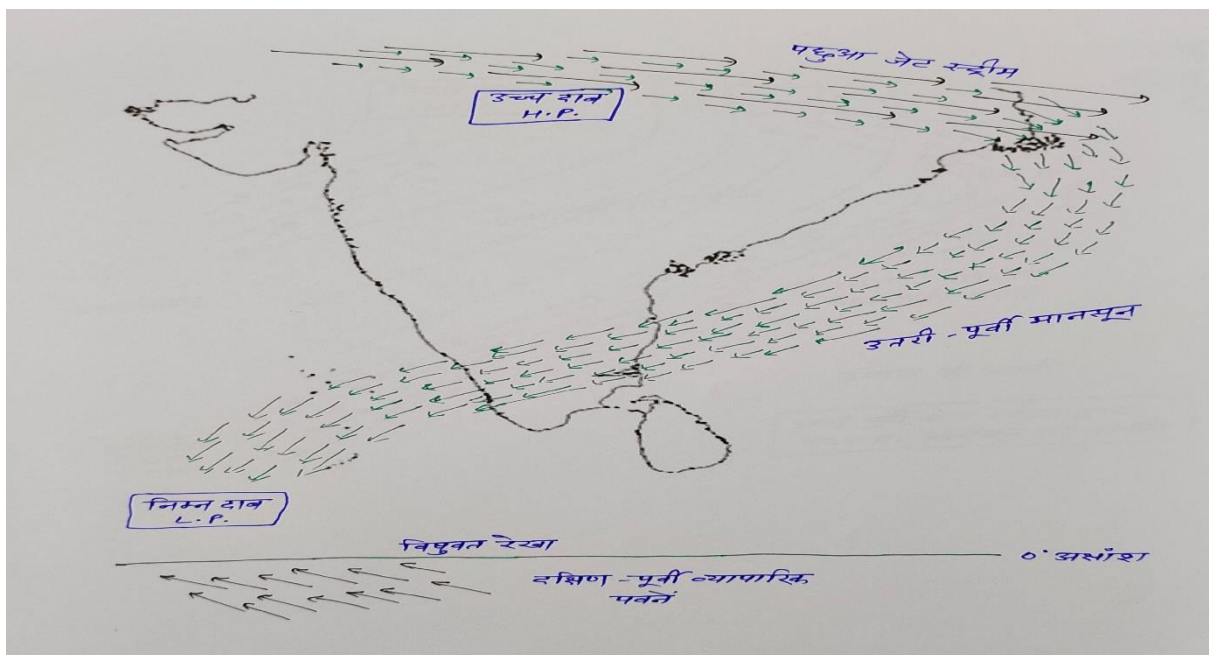 पछुआ जेट स्ट्रीम
उच्च दाब
H.P.
उतरी - पूर्वी मानसून
निम्न दाब
L.P.
विषुवत रेखा
0° अक्षांश
दक्षिण - पूर्वी व्यापारिक
पवनें